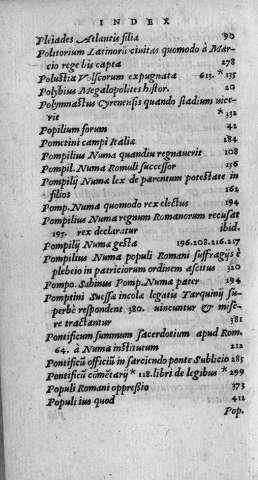 INDEX
Pleiades Atlantis filia 90
Politorium Latinorũ ciuitas quomodo à Mar-
cio rege bis capta 278
Polustia Volscorum expugnata 615. *135
Polybius Megalopolites histor. 20
Polymnastus Cyrenensis quando stadium vice-
rit *332
Popilium forum 42
Pometini campi Italiæ 184
Pompilius Numa quandiu regnauerit 208
Pompil. Numa Romuli successor 256
Pompilij Numæ lex de parentum potestate in
filios 162
Pomp. Numa quomodo rex electus 194
Pompilius Numa regnum Romanorum recusat
195. rex declaratur ibid.
Pompilij Numæ gesta 196.208.216.217
Pompilius Numa populi Romani suffragijs è
plebeio in patriciorum ordinem ascitus 320
Pompo. Sabinus Pomp. Numæ pater 194
Pomptini Suessæ incolæ legatis Tarquinij su-
perbè respondent 380. uincuntur & mise-
rè tractantur 381
Pontificum summum sacerdotium apud Rom.
64. à Numa institutum 212
Pontificũ officiũ in sarciendo ponte Sublicio 285
Pontificũ cõmẽtarij *118. libri de legibus *299
Populi Romani oppressio 373
Populi ius quod 412
Pop.